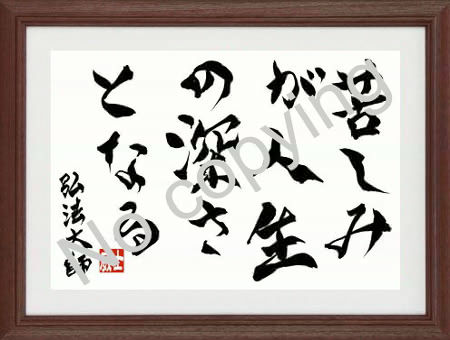 苦しみ
が人生
の深さ
となる
弘法大師
No copying